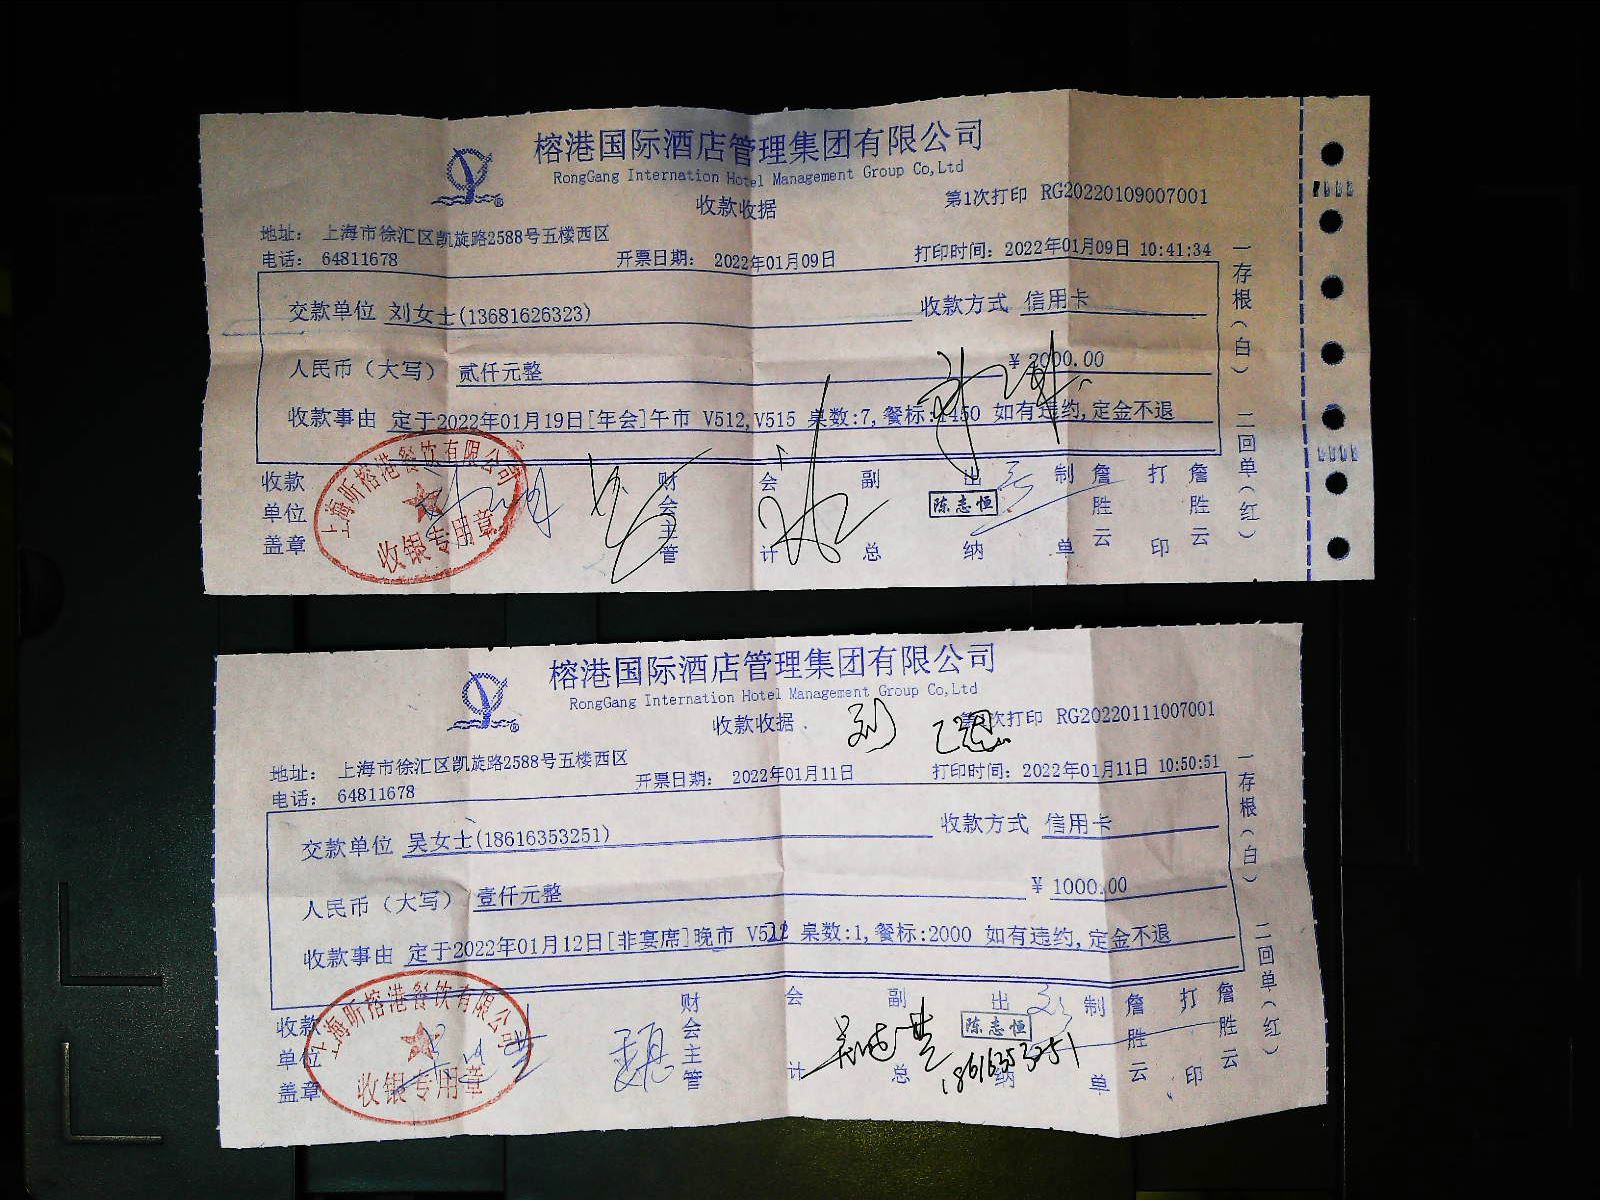 榕港国际酒店管理集团有限公司
RongGang Internation Hotel Management Group Co,Ltd
收款收据
第1次打印 RG20220109007001
地址： 上海市徐汇区凯旋路2588号五楼西区
电话： 64811678
开票日期： 2022年01月09日
打印时间：2022年01月09日 10:41:34
交款单位 刘女士(13681626323)
收款方式 信用卡
人民币（大写） 贰仟元整
¥ 2000.00
收款事由 定于2022年01月19日[年会]午市 V512,V515 桌数:7,餐标:4450 如有违约,定金不退
收款单位盖章
财会主管
会计
副总
出纳
陈志恒
制单
詹胜云
打印
詹胜云
一存根（白） 二回单（红）
上海昕榕港餐饮有限公司
收银专用章
榕港国际酒店管理集团有限公司
RongGang Internation Hotel Management Group Co,Ltd
收款收据
次打印 RG20220111007001
地址： 上海市徐汇区凯旋路2588号五楼西区
电话： 64811678
开票日期： 2022年01月11日
打印时间：2022年01月11日 10:50:51
交款单位 吴女士(18616353251)
收款方式 信用卡
人民币（大写） 壹仟元整
¥ 1000.00
收款事由 定于2022年01月12日[非宴席]晚市 桌数:1,餐标:2000 如有违约,定金不退
收款单位盖章
财会主管
会计
副总
出纳
陈志恒
18616353251
制单
詹胜云
打印
詹胜云
一存根（白） 二回单（红）
上海昕榕港餐饮有限公司
收银专用章